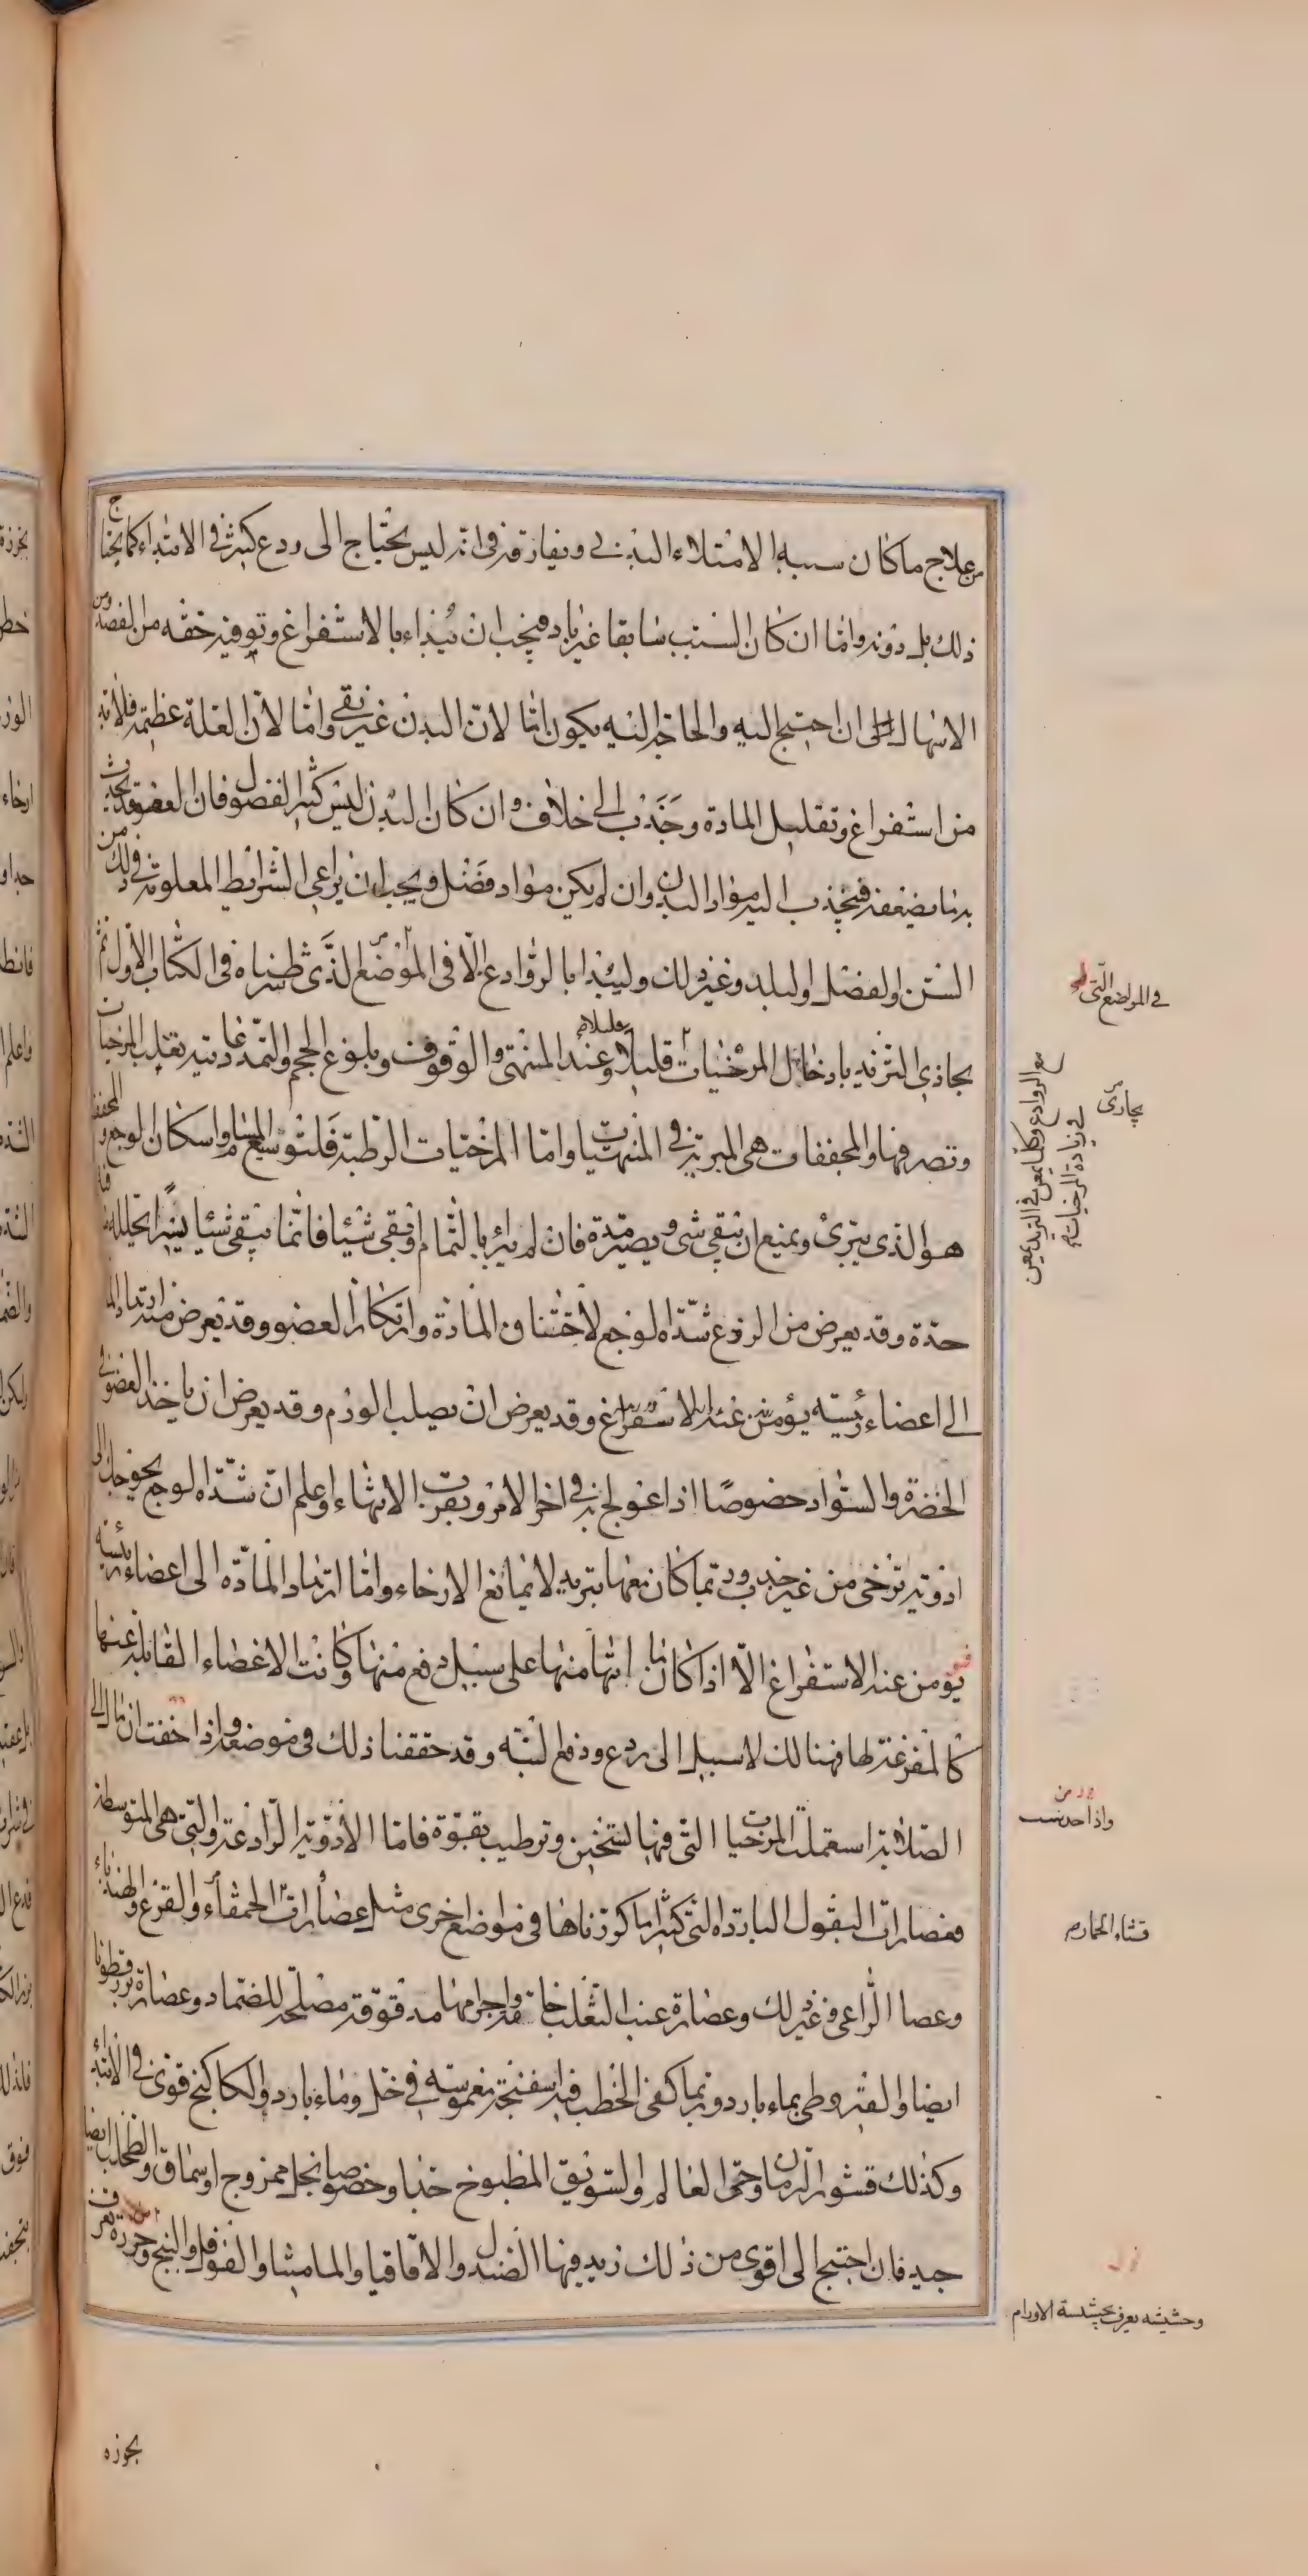 من علاج ما كان سببه الامتلاء البدنى ويفارقه فى انه ليس يحتاج الى ردع كثير فى الابتداء كما يحتاج
ذلك بل دونه واما ان كان السبب سابقا غير باد فيجب ان يبداء بالاستفراغ وتوفيه حقه من الفصد ومن
الاسهال ان احتيج اليه والحاجة اليه يكون اما لان البدن غير نقى واما لان العلة عظيمة فلا بد
من استفراغ وتقليل المادة وجذب الى خلاف وان كان البدن ليس كثير الفضول فان العضو قد يحدث
به ما يضعفه فينجذب اليه مواد البدن وان لم يكن مواد فضل ويجب ان يراعى الشرائط المعلومة فى ذلك من
السن والفصل والبلد وغير ذلك وليبدا بالروادع الا فى الموضع الذى شرطناه فى الكتاب الاول ثم
يجاذى التزيد بادخال المرخيات قليلا قليلا وعند المنتهى والوقوف وبلوغ الحجم والتمدد غايتيه يغلب المرخيات
وتصرفها والمجففات هى المبرئة فى المنتهى واما المرخيات الرطبة فلتوسيع المسام واسكان الوجع والمجفف
هو الذى يبرئ ويمنع ان يبقى شى ويصير مدة فان لم يبر بالتمام وبقى شيا فانما يبقى شيا يسيرا يحلله ما فيه
حدة وقد يعرض من الردع شدة الوجع لاختناق المادة وارتكاز العضو وقد يعرض منه ارتداد المادة
الى اعضاء رئيسة يؤمن عنه الاستفراغ وقد يعرض ان يصلب الورم وقد يعرض ان ياخذ العضو فى
الخضرة والسواد خصوصا اذا عولج به فى اخر الامر وبقرب الانتهاء واعلم ان شدة الوجع يحوجك الى
ادوية ترخى من غير جذب وربما كان معها تبريد لا يمانع الارخاء واما ارتداد المادة الى اعضاء رئيسة
فيؤمن عنه الاستفراغ الا اذا كان ما انتها منها على سبيل دفع منها وكانت الاعضاء القابلة عنها
كالمفرغة لها فهنالك لا سبيل الى ردع ودفع البتة وقد حققنا ذلك فى موضعه واذا خفت ان مال الى
الصلابة استعملت المرخيات التى فيها تسخين وترطيب بقوة فاما الادوية الرادعة والتى هى المتوسطة
فعصارات البقول الباردة التى كثيرا ما كررناها فى مواضع اخرى مثل عصارات الحمقاء والقرع والهندباء
وعصا الراعى وغير ذلك وعصارة عنب الثعلب خاصة واجرامها مدقوقة مصلحة للضماد وعصارة بزرقطونا
ايضا والقيروطى بماء بارد وربما كفى الخطب فيه اسفنجة مغموسة فى خل وماء بارد والكاكنج قوى فى الابتداء
وكذلك قشور الرمان وحى العالم والسويق المطبوخ جدا وخصوصا بخل ممزوج او سماق والطحلب ايضا
جيد فان احتيج الى اقوى من ذلك زيد فيها الصندل والاقاقيا والماميثا والفوفل والبنج وحرده يعرف
فى المواضع التى
يجارى
مع الروادع وكلما يمعن فى التزيد يمعن
فى زيادة المرخيات
واذا حدست
قثاء الحمار
وحشيشه يعرف بحشيشة الاورام
بجوزه